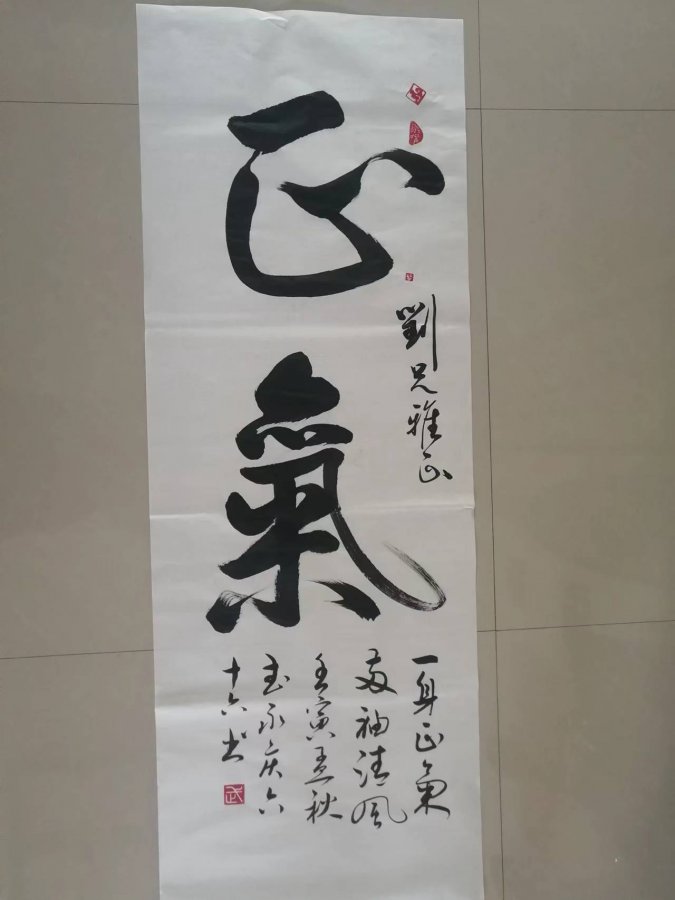 正氣
劉兄雅正
一身正氣
兩袖清風
壬寅孟秋
武永庆六
十六书
武